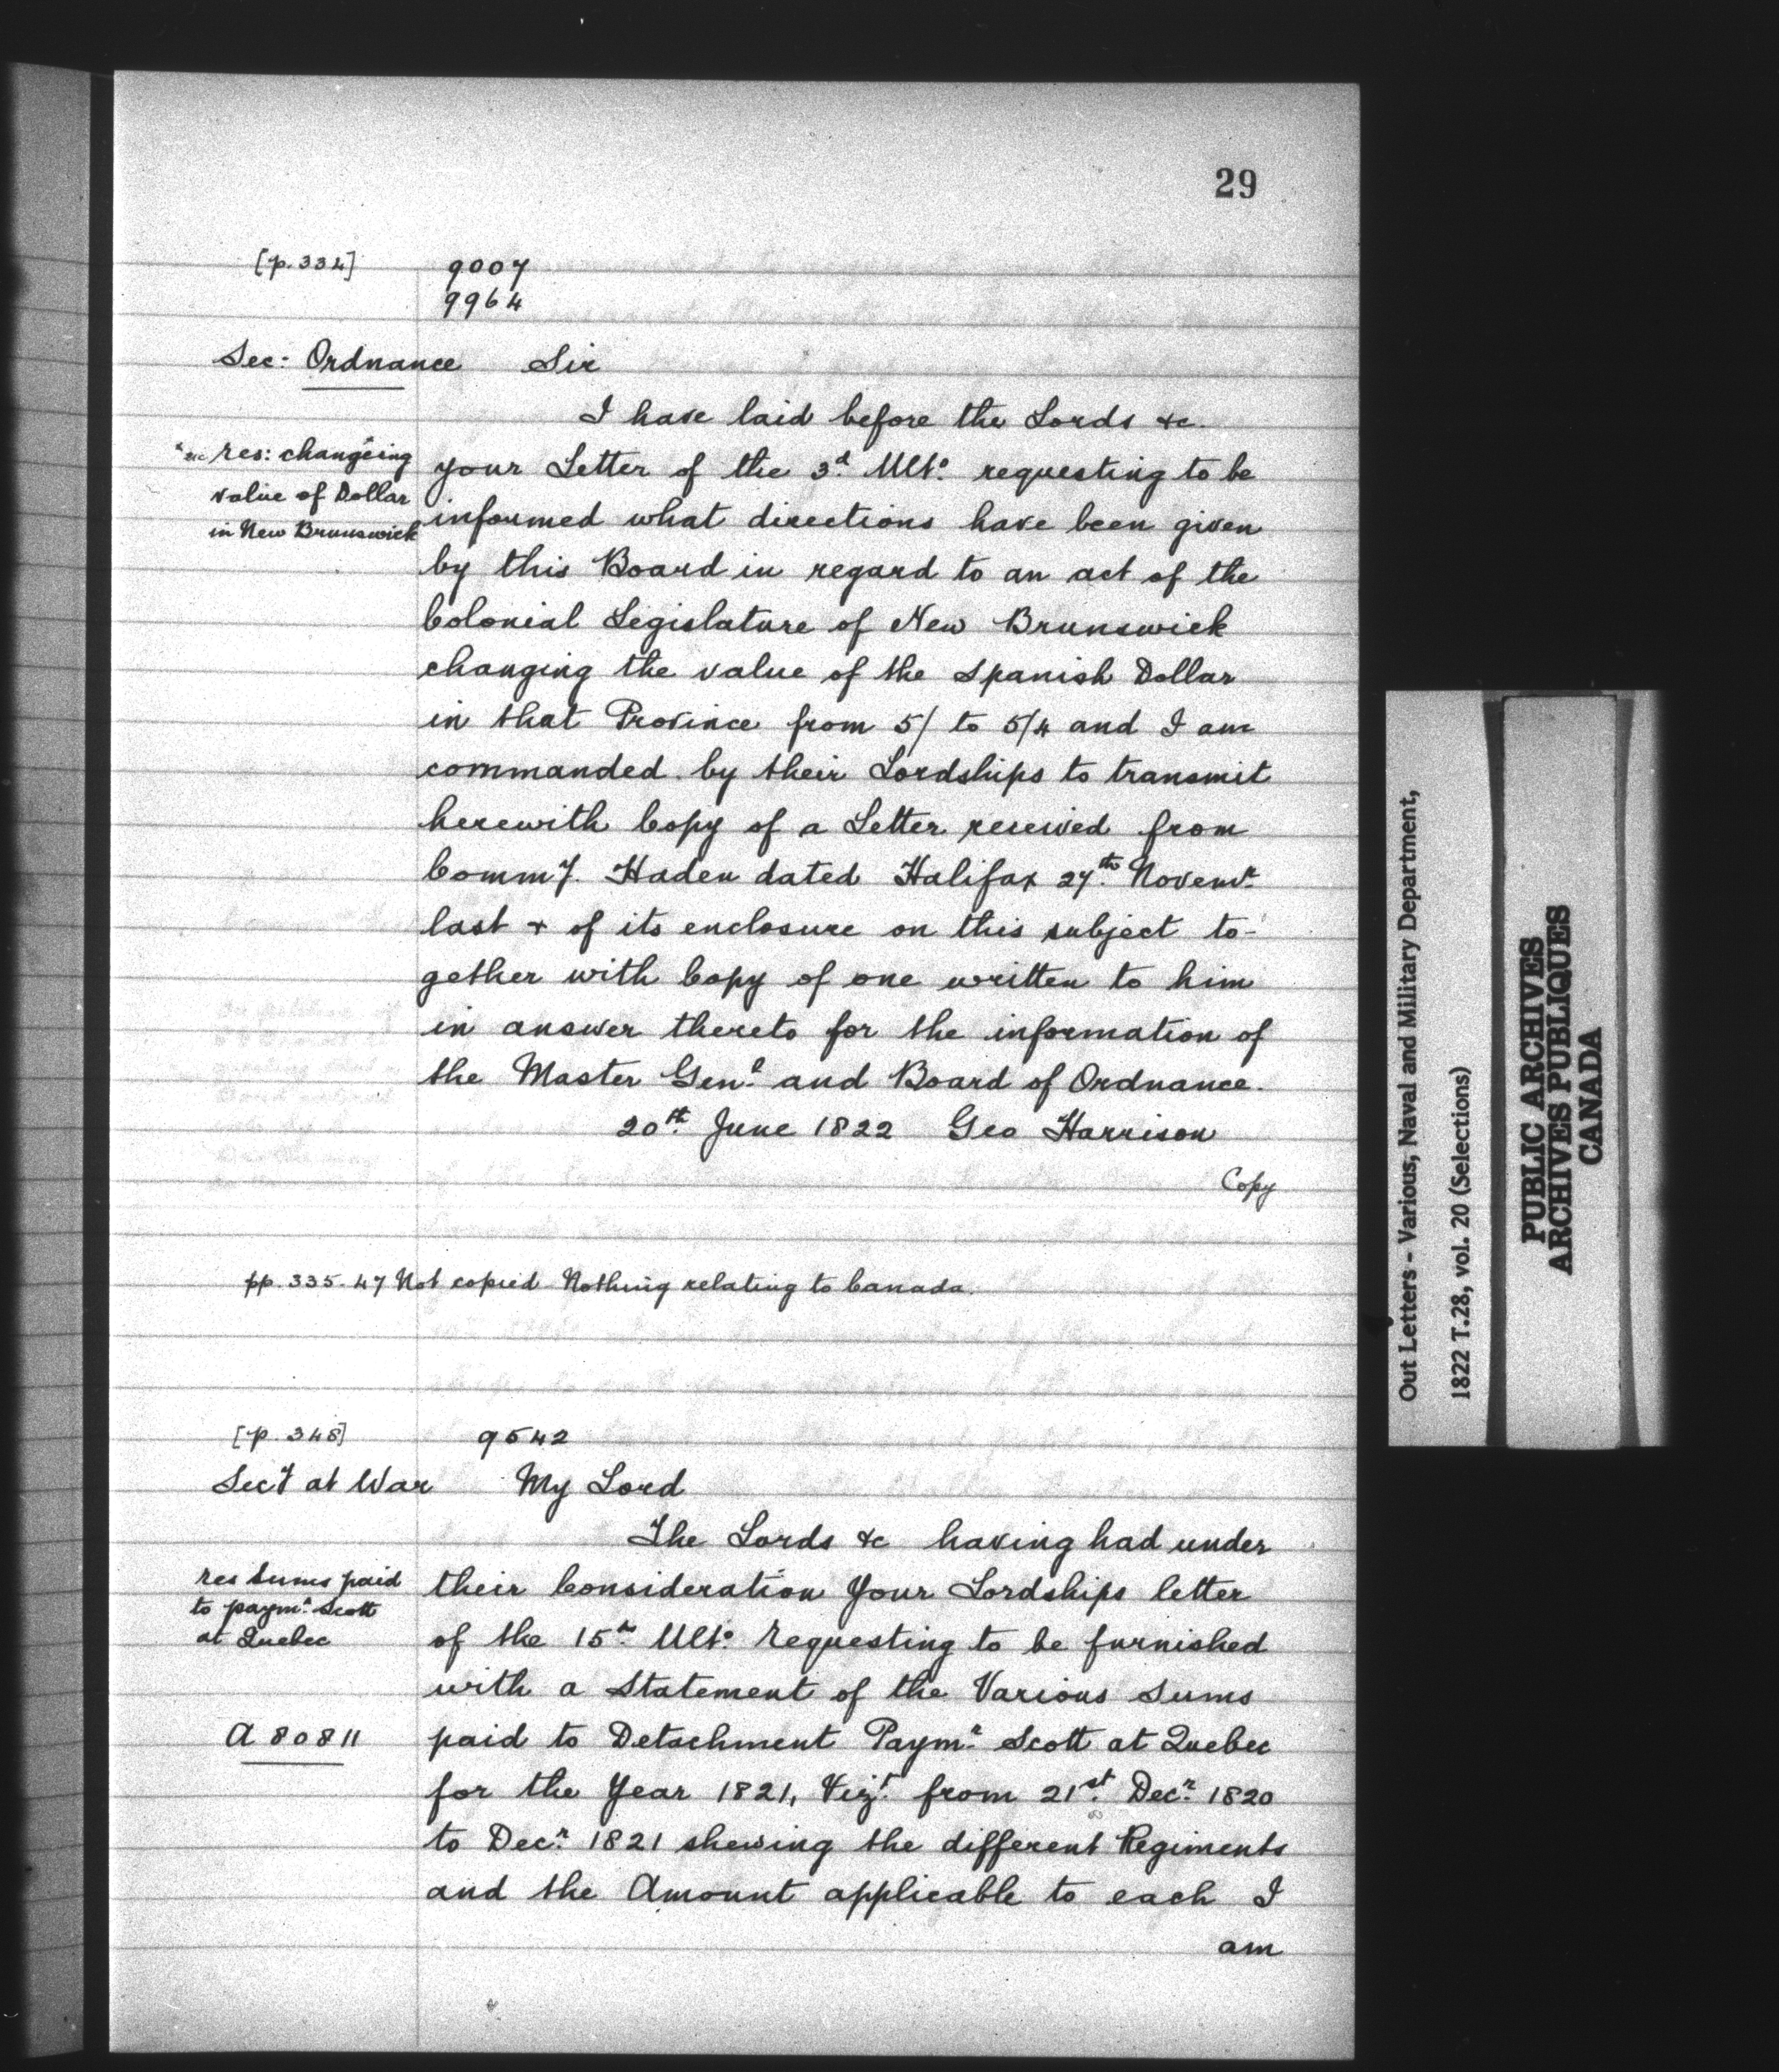 29
[p. 334]
9007
9964
Sec: Ordnance Sir
I have laid before the Lords &c.
*sic res: changeing*
value of Dollar
in New Brunswick
your Letter of the 3d. Ulto. requesting to be
informed what directions have been given
by this Board in regard to an act of the
Colonial Legislature of New Brunswick
changing the value of the Spanish Dollar
in that Province from 5/ to 5/4 and I am
commanded by their Lordships to transmit
herewith Copy of a Letter received from
Commy. Haden dated Halifax 27th. Novemr.
last & of its enclosure on this subject to-
gether with Copy of one written to him
in answer thereto for the information of
the Master Genl. and Board of Ordnance.
20th. June 1822 Geo Harrison
Copy
pp. 335-47 Not copied Nothing relating to Canada.
[p. 348]
9542
Secy at War My Lord
The Lords &c having had under
res Sums paid
to paymr. Scott
at Quebec
their Consideration Your Lordships letter
of the 15th. Ulto. requesting to be furnished
with a Statement of the Various Sums
A 80811
paid to Detachment Paymr. Scott at Quebec
for the Year 1821, Vizt. from 21st. Decr. 1820
to Decr. 1821 shewing the different Regiments
and the Amount applicable to each I
am
Out Letters - Various, Naval and Military Department,
1822 T.28, vol. 20 (Selections)
PUBLIC ARCHIVES
ARCHIVES PUBLIQUES
CANADA